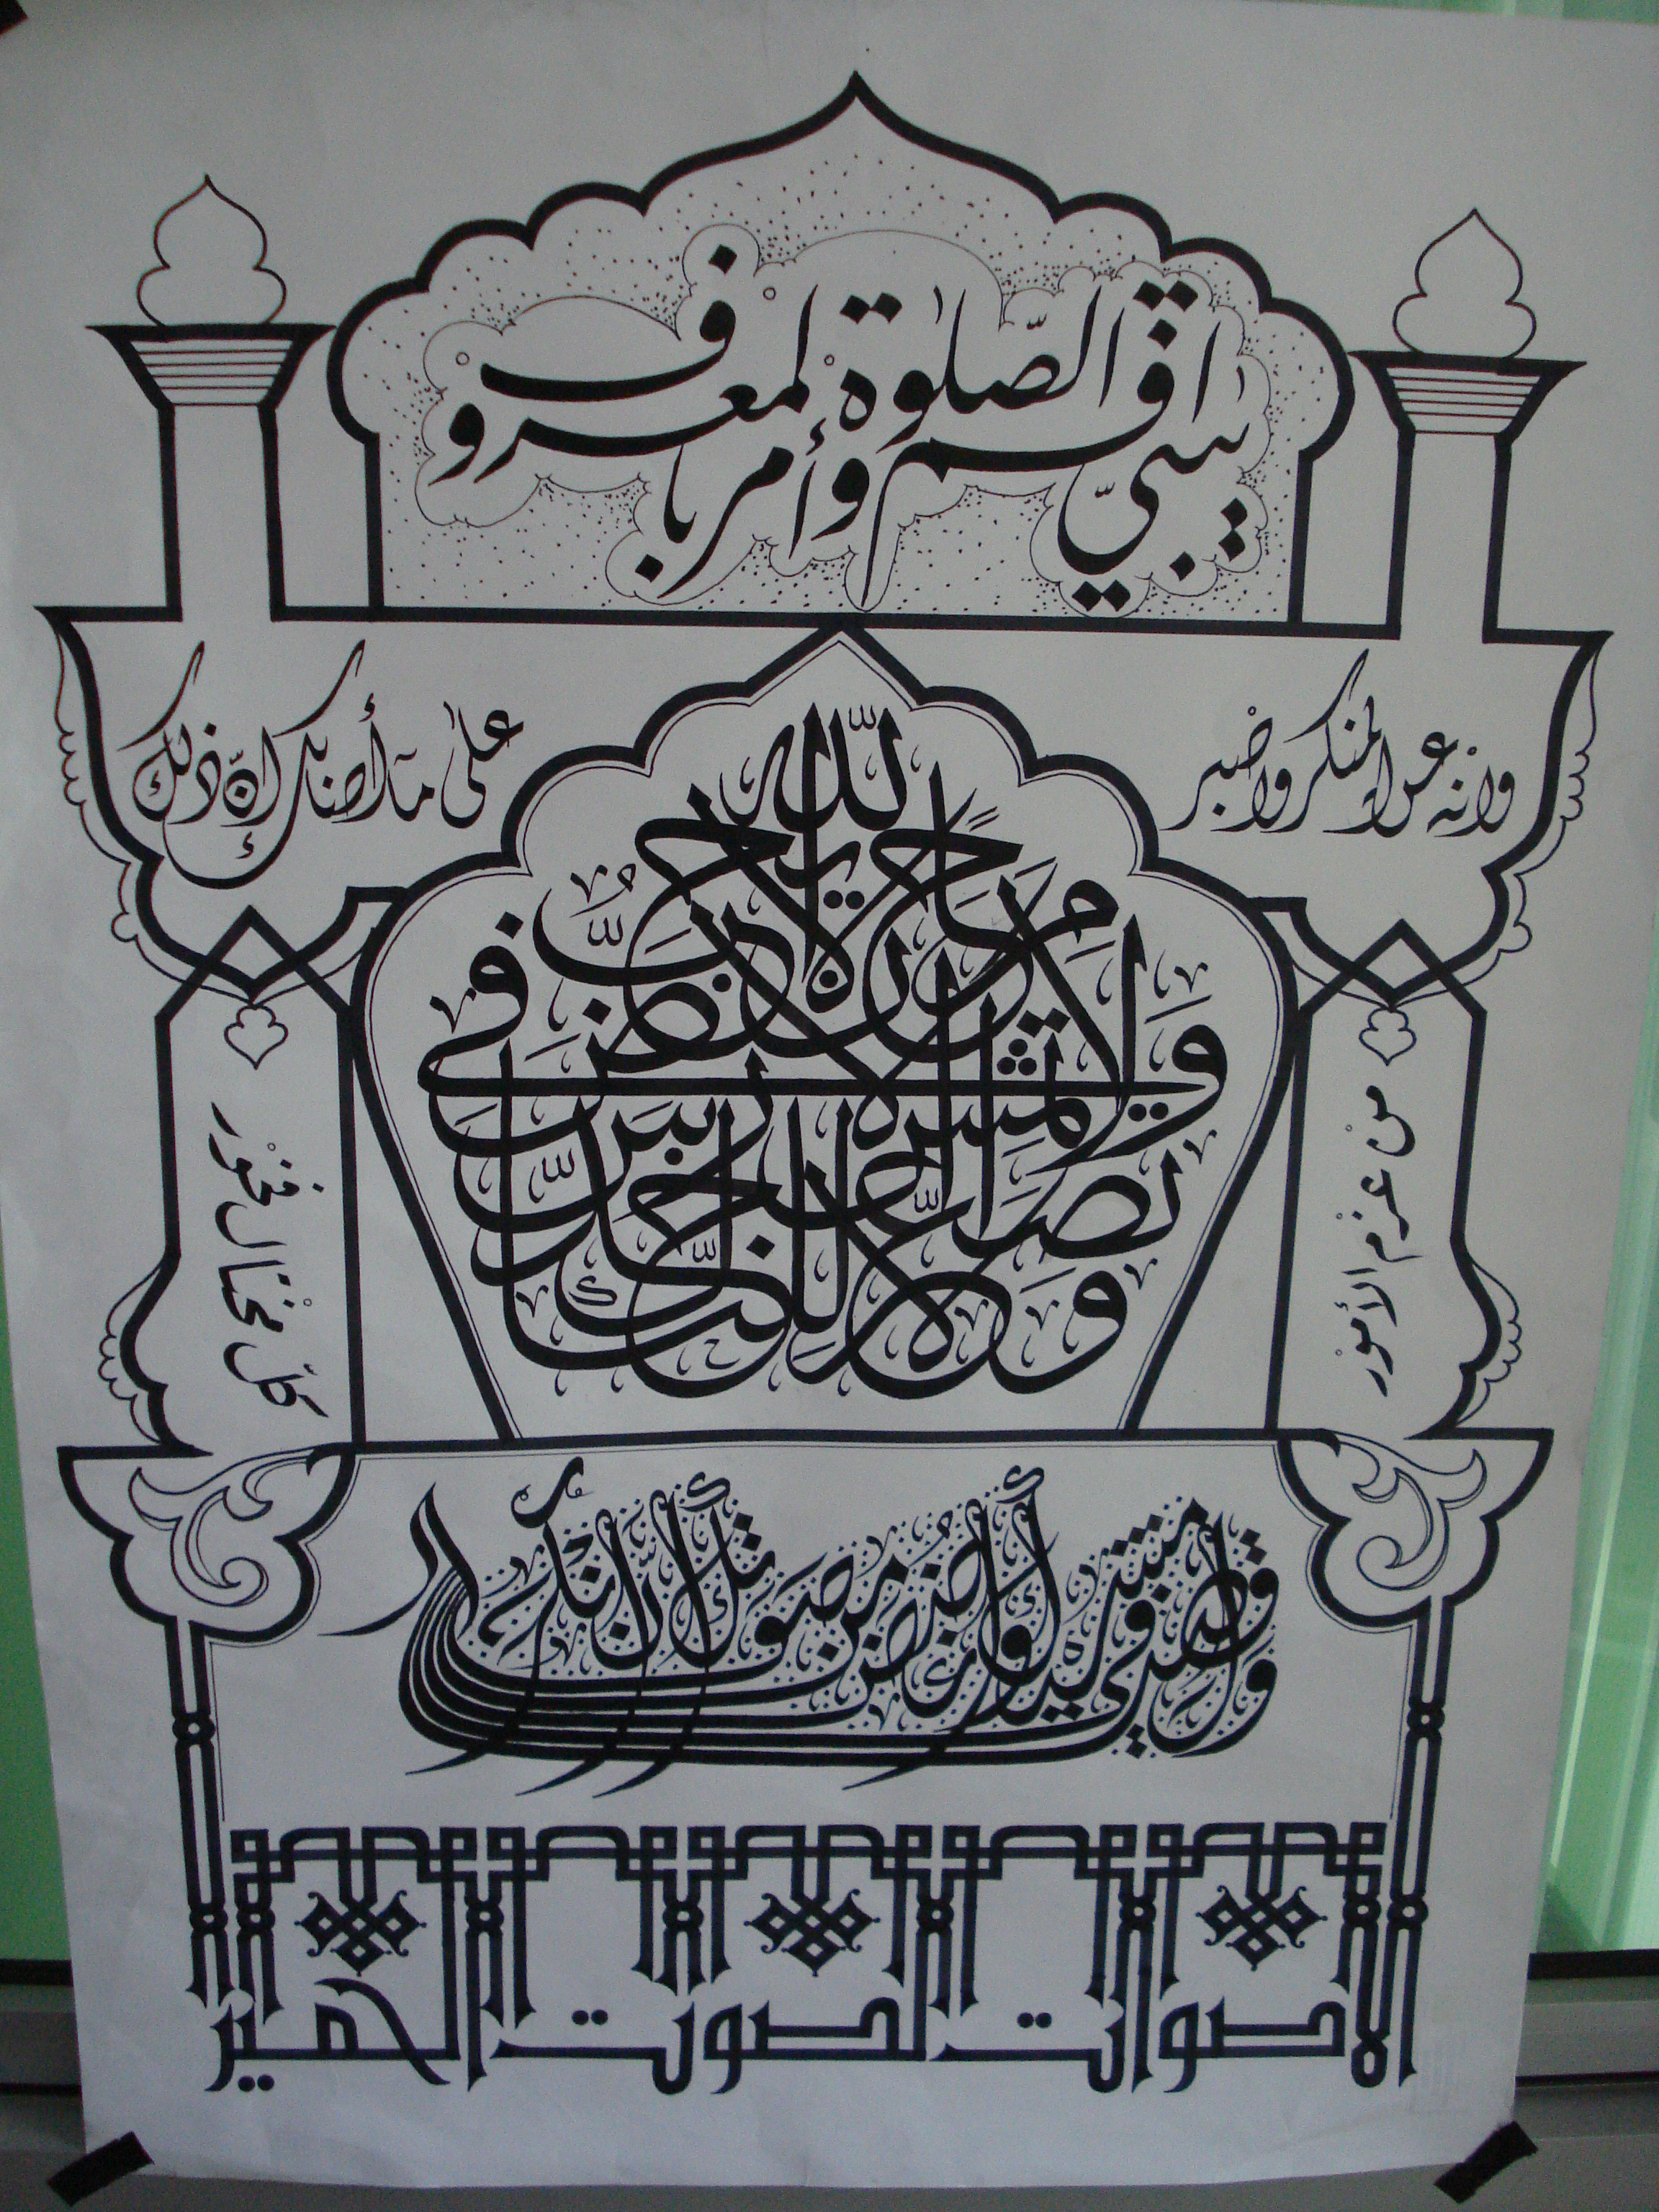 يٰبنيّ اقم الصّلوٰة وأمر بالمعروف
وانْه عن المنكر واصْبر
علىٰ مآ أصابك إنّ ذٰلك
منْ عزْم الأمور
ولا تصعّر خدّك للنّاس ولا تمش في الأرض مرحًا إنّ اللّه لا يحبّ
كلّ مخْتال فخوْر
واقصد في مشيك واغضض من صوتك إنّ أنكر
الاصوات لصوت الحمير